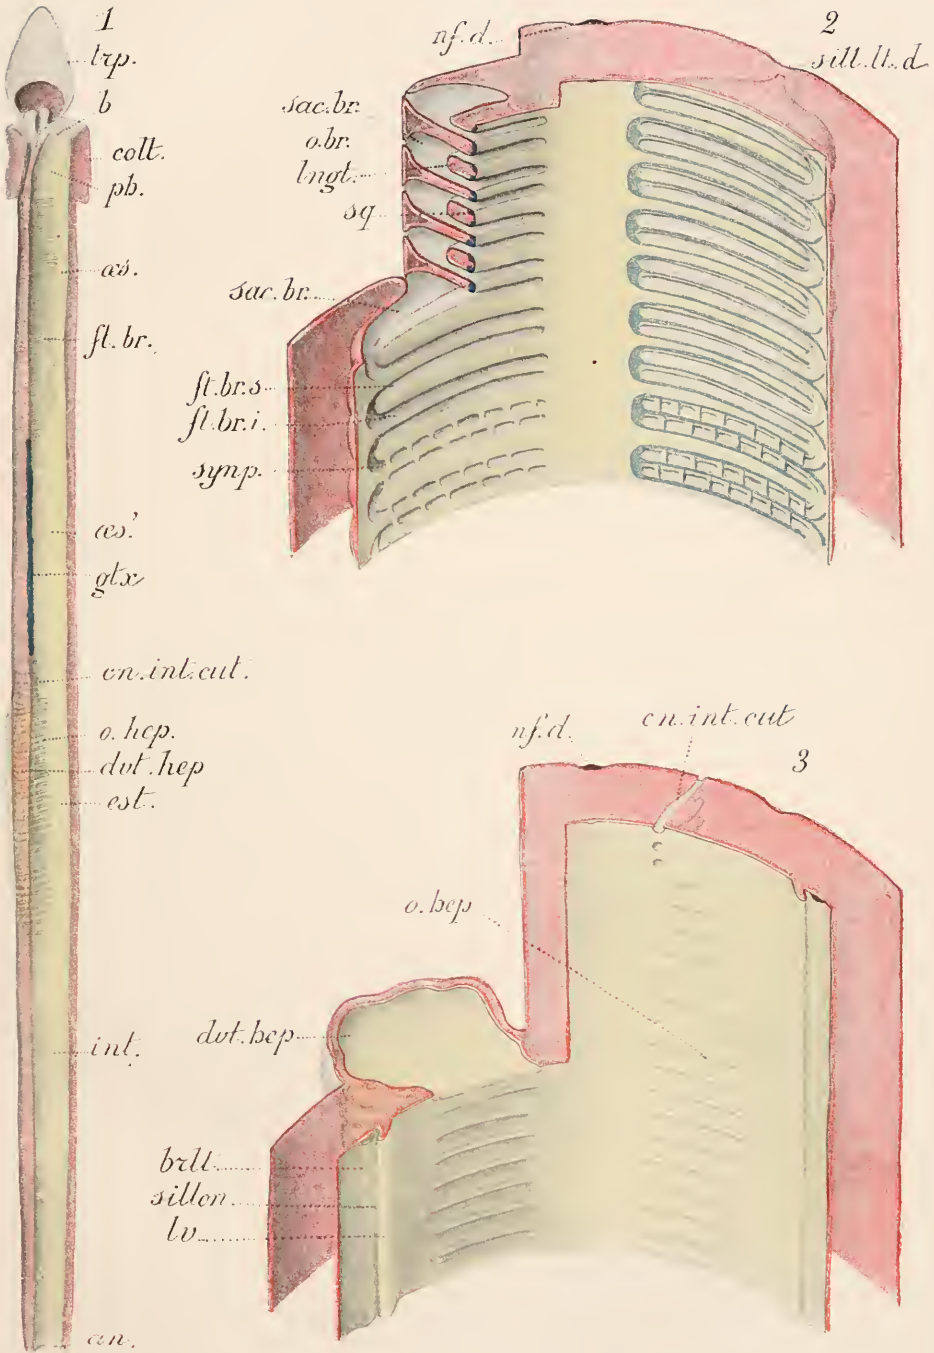 1
trp.
b
colt.
ph.
œs.
fl.br.
œs'.
gtx
cn.int.cut.
o.hep.
dvt.hep
est.
int.
an.
2
nf.d.
sill.lt.d
sac.br.
o.br.
lngt.
sq
sac.br.
ft.br.s
ft.br.i.
synp.
3
nf.d.
cn.int.cut
o.hep
dvt.hep
brlt
sillon
lv